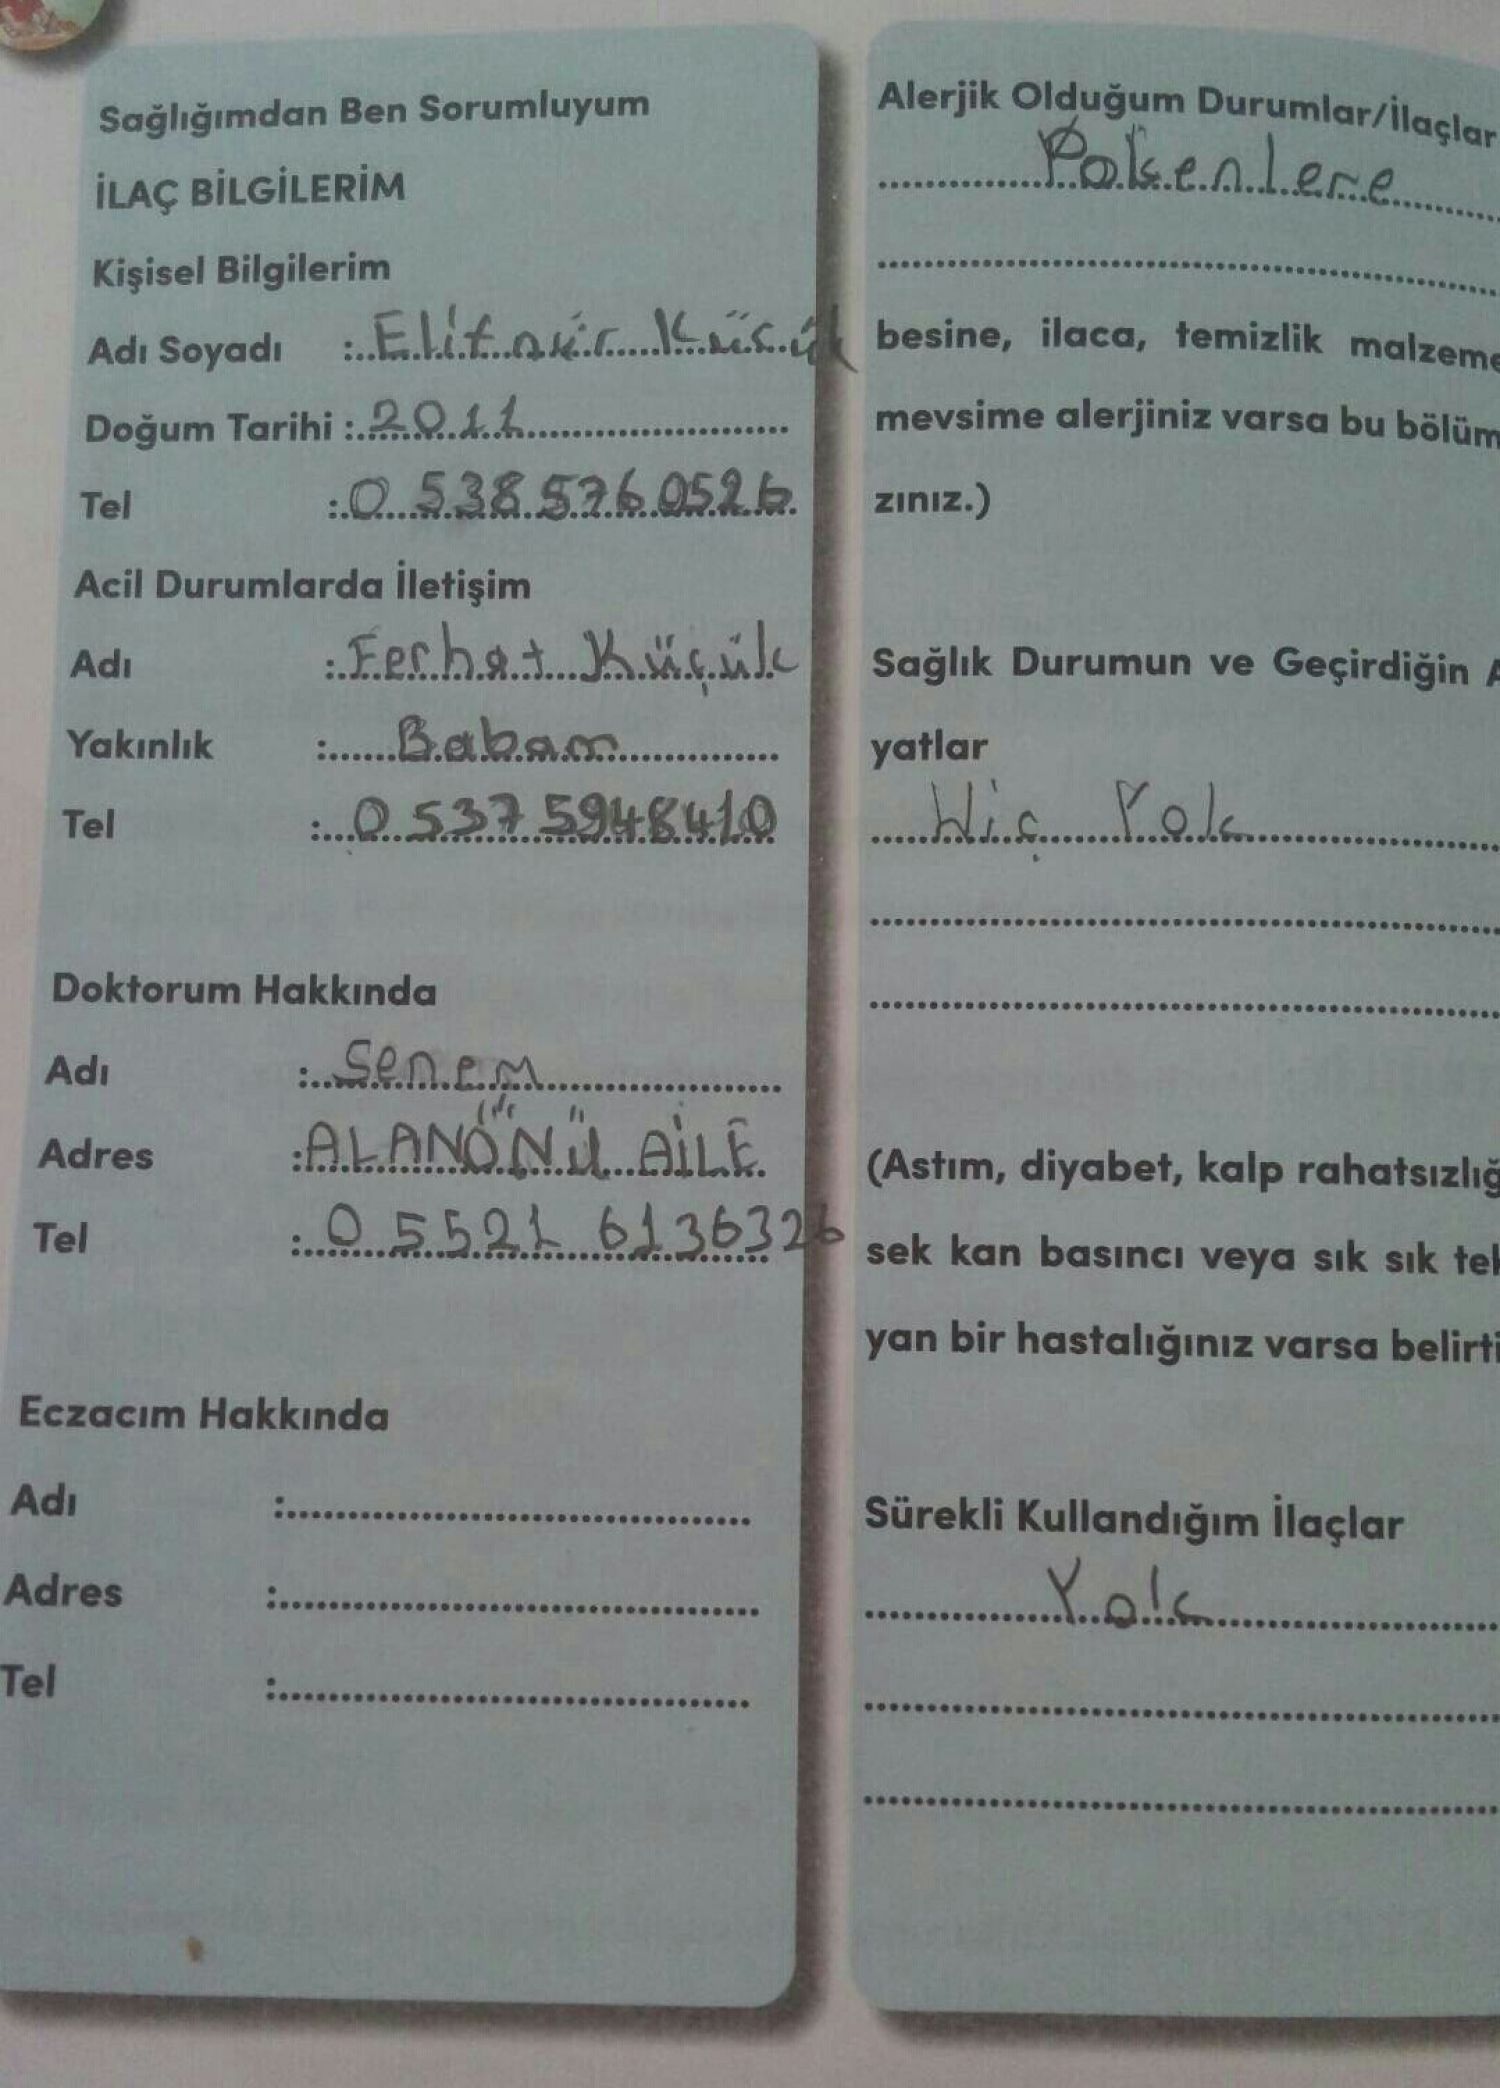 Sağlığımdan Ben Sorumluyum
İLAÇ BİLGİLERİM
Kişisel Bilgilerim
Adı Soyadı : Elif nur Küçük
Doğum Tarihi : 2011
Tel : 0 538 576 0526
Acil Durumlarda İletişim
Adı : Ferhat Küçük
Yakınlık : Babam
Tel : 0 537 5948410
Doktorum Hakkında
Adı : Senem
Adres : ALANÖNÜ AİLE
Tel : 0 5521 6136326
Eczacım Hakkında
Adı :
Adres :
Tel :
Alerjik Olduğum Durumlar/İlaçlar
Polsenlere
besine, ilaca, temizlik malzeme
mevsime alerjiniz varsa bu bölüm
zınız.)
Sağlık Durumun ve Geçirdiğin A
yatlar
Hiç Yok
(Astım, diyabet, kalp rahatsızlığ
sek kan basıncı veya sık sık tek
yan bir hastalığınız varsa belirti
Sürekli Kullandığım İlaçlar
Yok